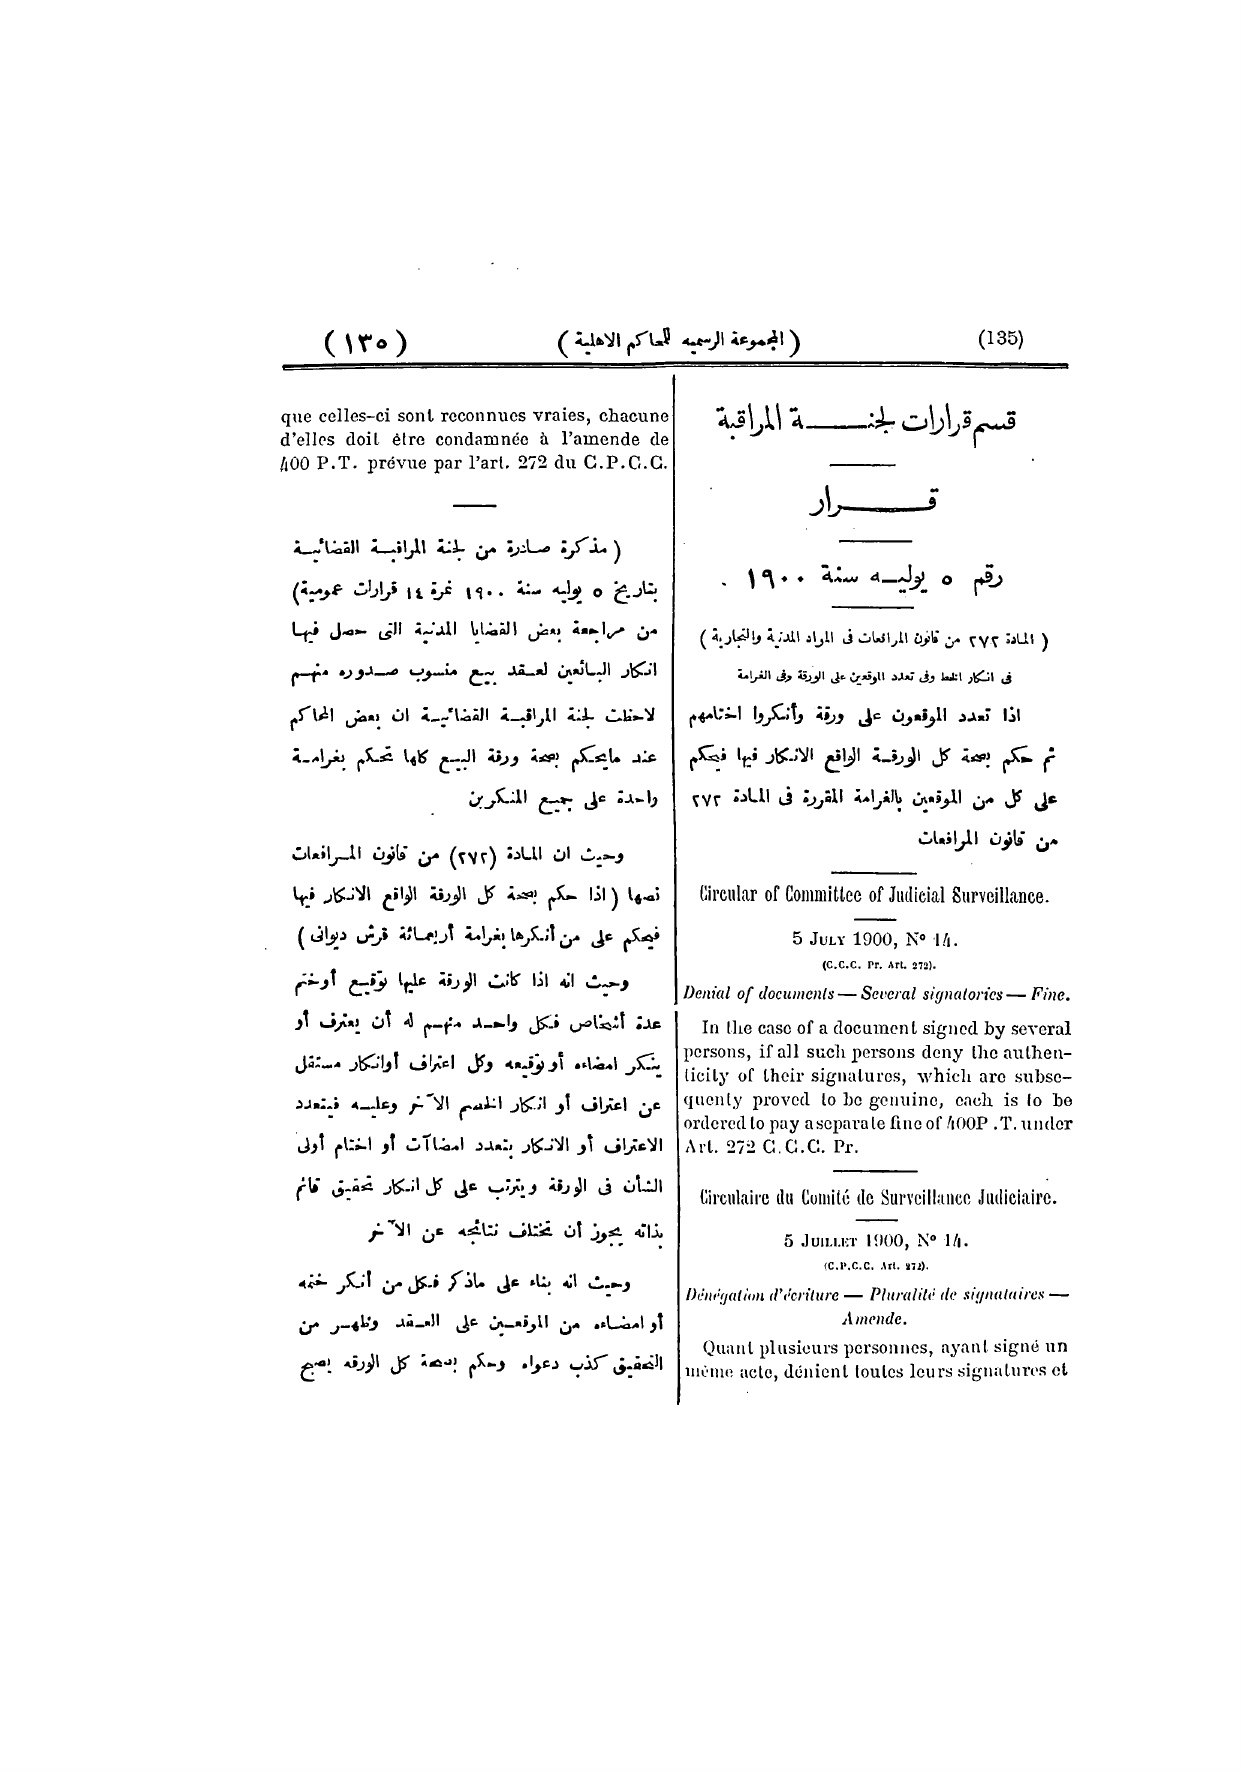 (135)
( المجموعة الرسميه للمحاكم الاهلية )
( ١٣٥ )
قسم قرارات لجنة المراقبة
قرار
رقم ٥ يوليه سنة ١٩٠٠ .
( المادة ٢٧٢ من قانون المرافعات فى المواد المدنية والتجارية )
فى انكار الخط وفى تعدد الموقعين على الورقة وفى الغرامة
اذا تعدد الموقعون على ورقة وأنكروا اختامهم
ثم حكم بصحة كل الورقة الواقع الانكار فيها فيحكم
على كل من الموقعين بالغرامة المقررة فى المادة ٢٧٢
من قانون المرافعات
Circular of Committee of Judicial Surveillance.
5 JULY 1900, Nº 14.
(C.C.C. Pr. Art. 272).
Denial of documents — Several signatories — Fine.
In the case of a document signed by several
persons, if all such persons deny the authen-
ticity of their signatures, which are subse-
quently proved to be genuine, each is to be
ordered to pay a separate fine of 400P .T. under
Art. 272 C.C.C. Pr.
Circulaire du Comité de Surveillance Judiciaire.
5 JUILLET 1900, Nº 14.
(C.P.C.C. Art. 272).
Dénégation d'écriture — Pluralité de signataires —
Amende.
Quant plusieurs personnes, ayant signé un
même acte, dénient toutes leurs signatures et
que celles-ci sont reconnues vraies, chacune
d'elles doit être condamnée à l'amende de
400 P.T. prévue par l'art. 272 du C.P.C.C.
( مذكرة صادرة من لجنة المراقبة القضائية
بتاريخ ٥ يوليه سنة ١٩٠٠ نمرة ١٤ قرارات عمومية)
من مراجعة بعض القضايا المدنية التى حصل فيها
انكار البائعين لعقد بيع منسوب صدوره منهم
لاحظت لجنة المراقبة القضائية ان بعض المحاكم
عند مايحكم بصحة ورقة البيع كلها تحكم بغرامة
واحدة على جميع المنكرين
وحيث ان المادة (٢٧٢) من قانون المرافعات
نصها ( اذا حكم بصحة كل الورقة الواقع الانكار فيها
فيحكم على من أنكرها بغرامة أربعمائة قرش ديوانى )
وحيث انه اذا كانت الورقة عليها توقيع أوختم
عدة أشخاص فكل واحد منهم له أن يعترف أو
ينكر امضاءه أو توقيعه وكل اعتراف أوانكار مستقل
عن اعتراف أو انكار الخصم الآخر وعليه فيتعدد
الاعتراف أو الانكار بتعدد امضاآت أو اختام أولى
الشأن فى الورقة ويترتب على كل انكار تحقيق قائم
بذاته يجوز أن تختلف نتائجه عن الآخر
وحيث انه بناء على ماذكر فكل من أنكر ختمه
أو امضاءه من الموقعين على العقد وظهر من
التحقيق كذب دعواه وحكم بصحة كل الورقه يصح